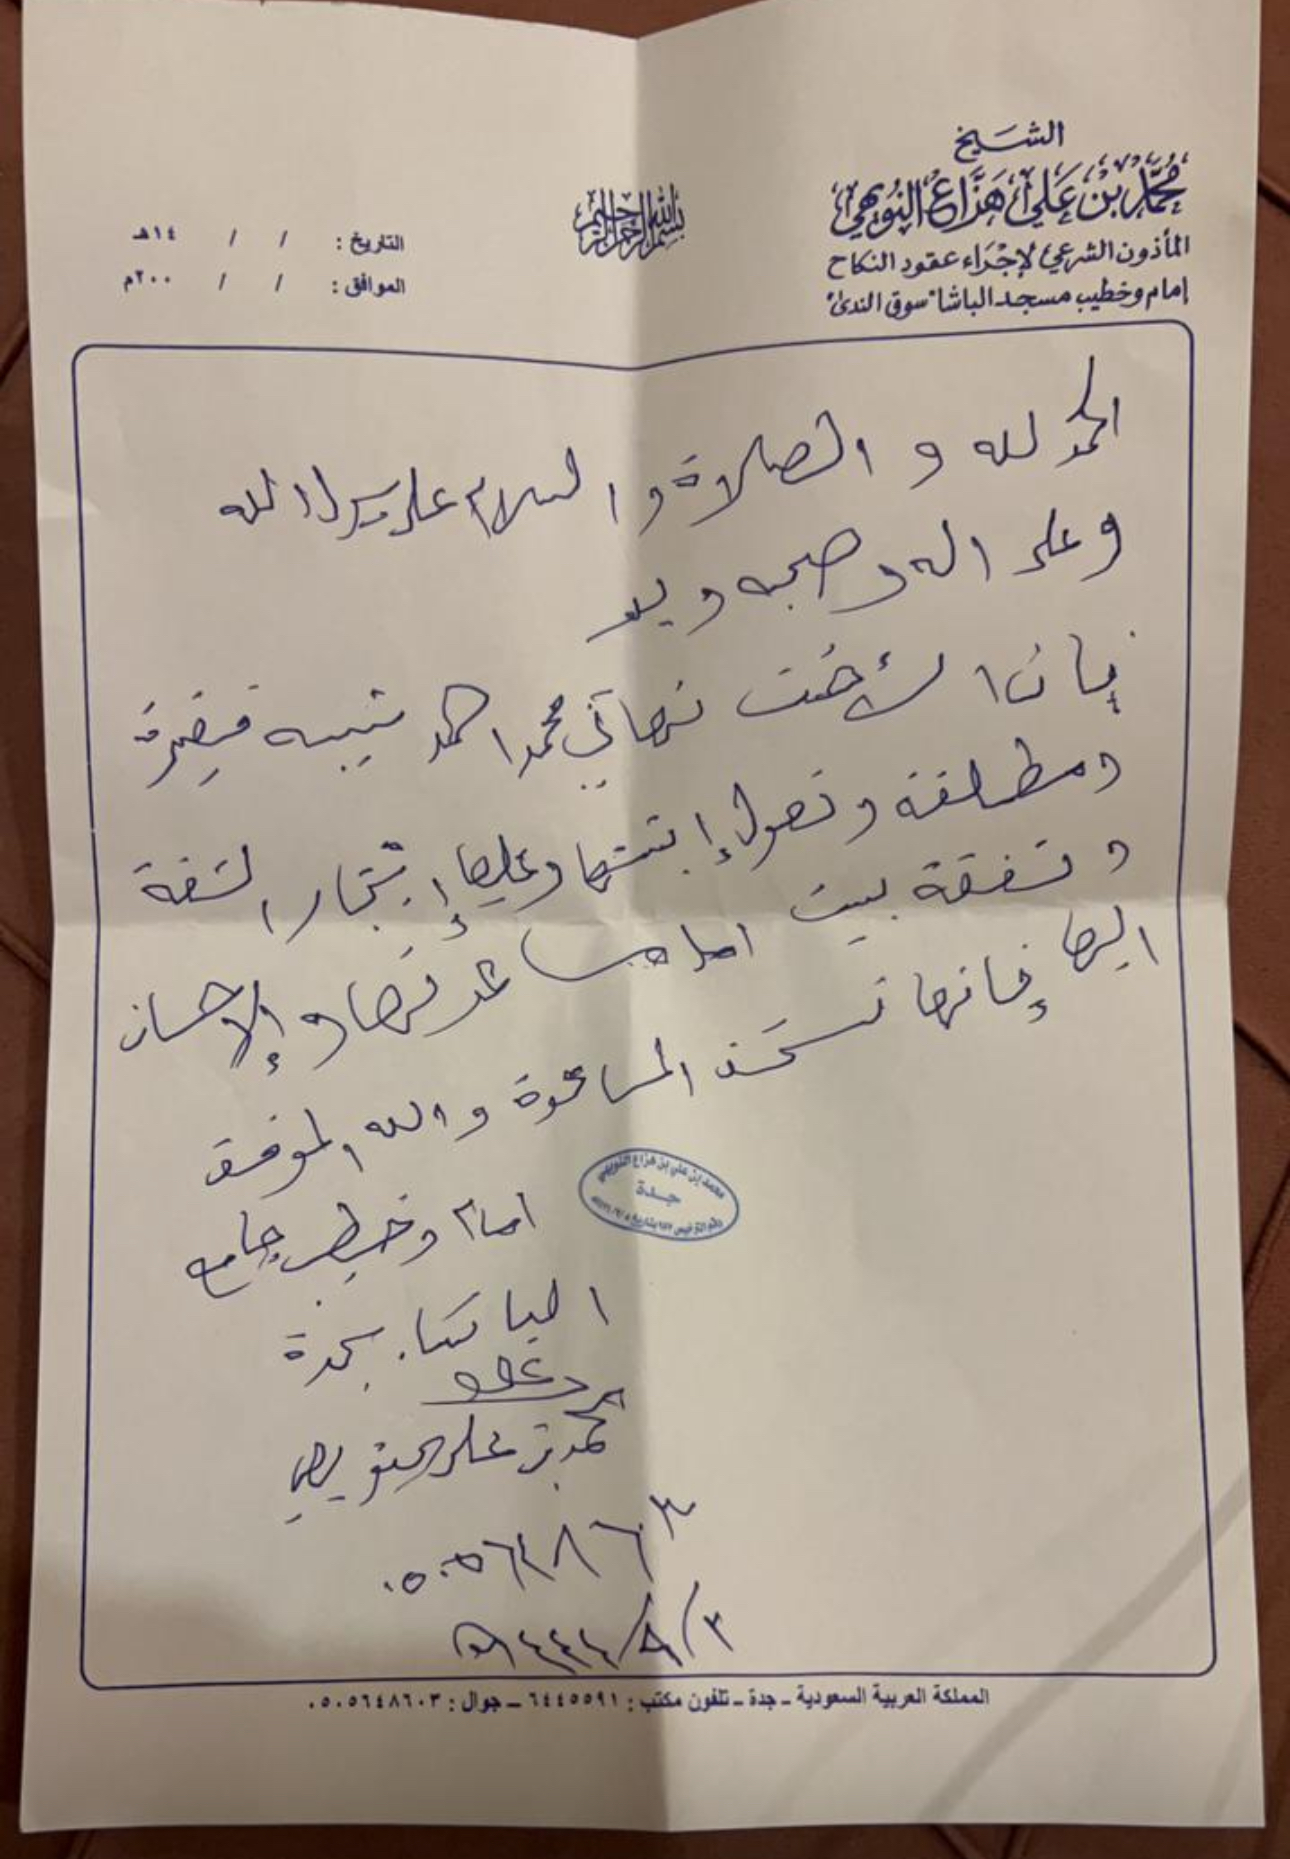 الشيخ
محمد بن علي هزاع النويهي
المأذون الشرعي لإجراء عقود النكاح
إمام وخطيب مسجد الباشا "سوق الندى"
بسم الله الرحمن الرحيم
التاريخ : / / ١٤هـ
الموافق : / / ٢٠٠م
الحمد لله و الصلاة و السلام على رسول الله
وعلى اله وصحبه وبعد
فإن الأخت تهاني محمد احمد شيبه فقيرة
ومطلقة وتعول إبنتها وعليها إيجار الشقة
و نفقة بيت امل مساعدتها و الإحسان
اليها فإنها تستحق المساعدة والله الموفق
امام وخطيب جامع
الباشا بجدة
محمد بن علي النويهي
٠٥٠٥٦٤٨٦٠٣
٣/٨/١٤٤٤هـ
محمد بن علي بن هزاع النويهي
جـدة
المملكة العربية السعودية ـ جدة ـ تلفون مكتب : ٦٤٤٥٥٩١ ـ جوال : ٠٥٠٥٦٤٨٦٠٣